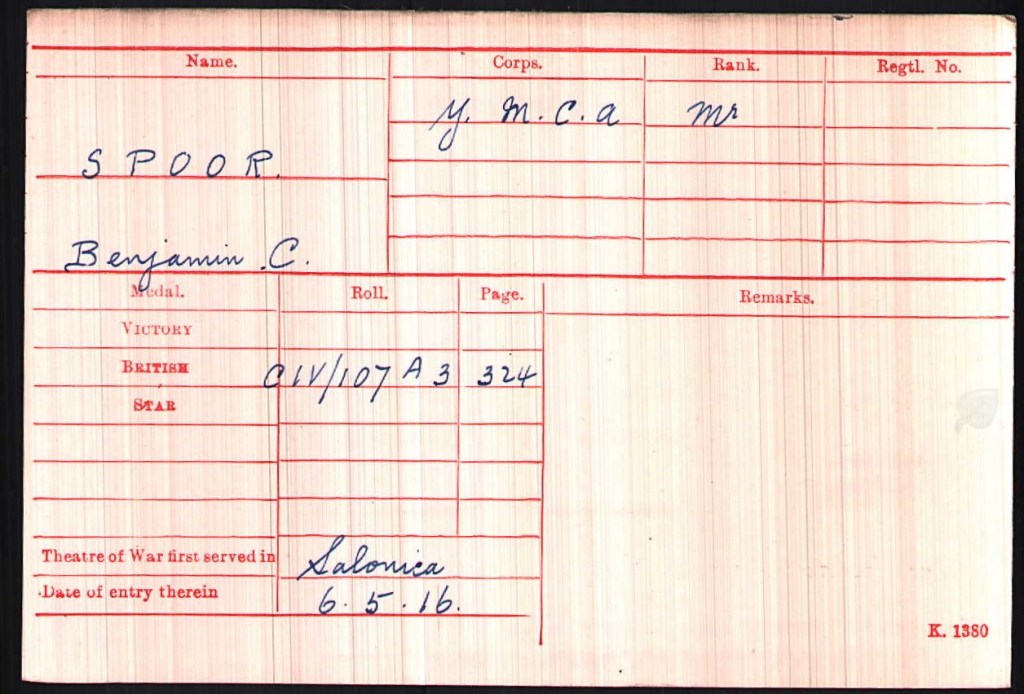 Name. Corps. Rank. Regtl. No.
Y. M. C. A Mr
SPOOR.
Benjamin C.
Medal. Roll. Page. Remarks.
VICTORY
BRITISH C IV/107 A 3 324
STAR
Theatre of War first served in Salonica
Date of entry therein 6. 5. 16.
K. 1380